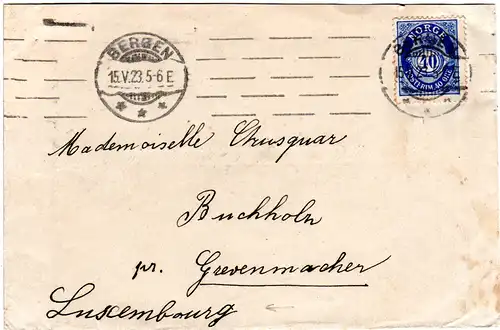 BERGEN
15.V.23.5-6 E
NORGE
40
Mademoiselle Strusquar
Buchholn
pr. Grevenmacher
Luxembourg